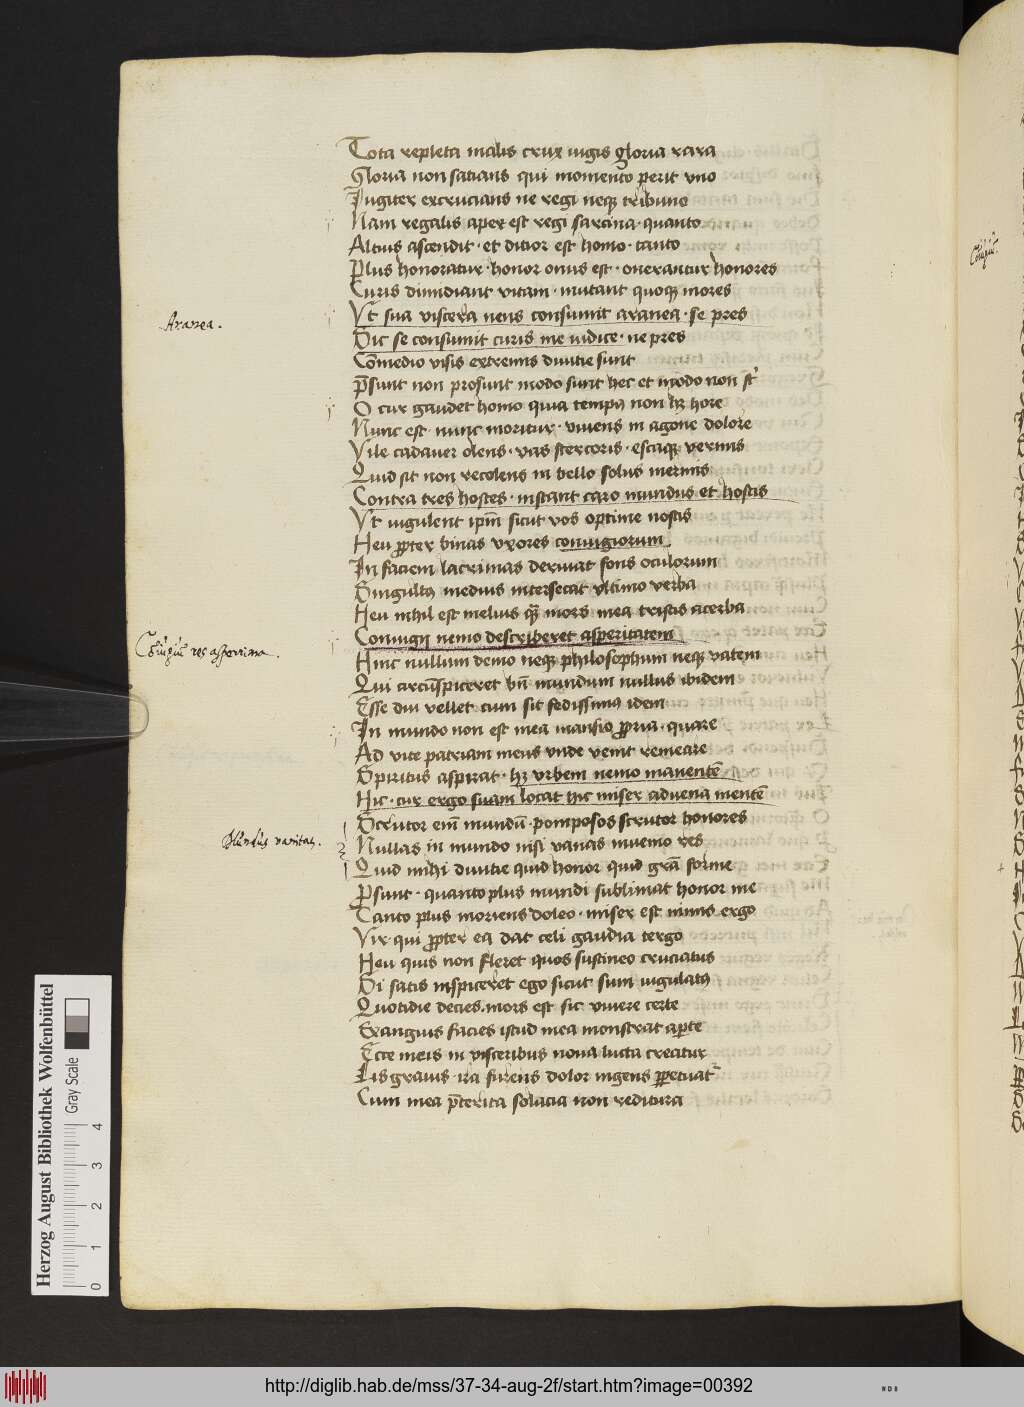 Tota repleta malis crux iugis gloria rara
Gloria non sacians qui momento perit vno
Jugiter excrucians ne regi neqʒ tribuno
Nam regalis apex est regi sarcina · quanto
Altius ascendit · et ditior est homo · tanto
Plus honoratur · honor onus est · onerantur honores
Curis dimidiant vitam · mutant quoqʒ mores
Vt sua viscera nens consumit aranea · se pres
Aranea .
Dic se consumit curis me iudice · ne pres
Cōmedio visis extremis diuitie sunt
p̄sunt non prosunt modo sunt hec et modo non st̄
O cur gaudet homo quia tempꝰ non hʒ hore
Nunc est · nunc moritur · viuens in agone dolore
Vile cadauer olens · vas stercoris · escaqʒ vermis
Quid sit non recolens in bello solus inermis
Contra tres hostes · instant caro mundus et hostis
Vt iugulent ipm̄ sicut vos optime nostis
Heu ꝓpter binas vxores coniugiorum
In faciem lacrimas deriuat fons oculorum
Singultꝰ medius intersecat vltimo verba
Heu nihil est melius qͣ mors mea tristis acerba
Coniugij nemo describeret asperitatem
Cōiugiū res asperrima .
Hinc nullum demo neqʒ philosophum neqʒ vatem
Qui circūspiceret bn̄ mundum nullus ibidem
Esse diu vellet cum sit fedissimꝰ idem
In mundo non est mea mansio ꝓpria · quare
Ad vite patriam meus vnde venit remeare
Spiritus aspirat · hʒ vrbem nemo manentē
Hic · cur ergo suam locat hic miser aduena mentē
Scrutor em̄ mundū · pomposos scrutor honores
Mundus vanitas.
Nullas in mundo nisi vanas inuenio res
Quid mihi diuitie quid honor quid grā forme
Psunt · quanto plus mundi sublimat honor me
Tanto plus moriens doleo · miser est nimis ergo
Vir qui ꝓpter ea dat celi gaudia tergo
Heu quis non fleret quos sustineo cruciatus
Si satis inspiceret ego sicut sum iugulatꝰ
Quotidie decies · mors est sic viuere certe
Exanguis facies istud mea monstrat aperte
Ecce meis in visceribus noua lucta creatur
Lis grauis · ira furens dolor ingens ꝑpetuat᷑
Cum mea p̄terita solacia non reditura
Cōiugiū.
Herzog August Bibliothek Wolfenbüttel
Gray Scale
0 1 2 3 4
http://diglib.hab.de/mss/37-34-aug-2f/start.htm?image=00392